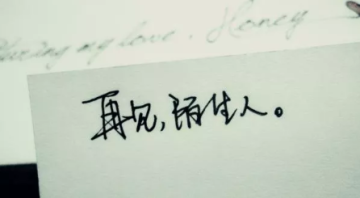 my love. Honey
再见,陌生人。